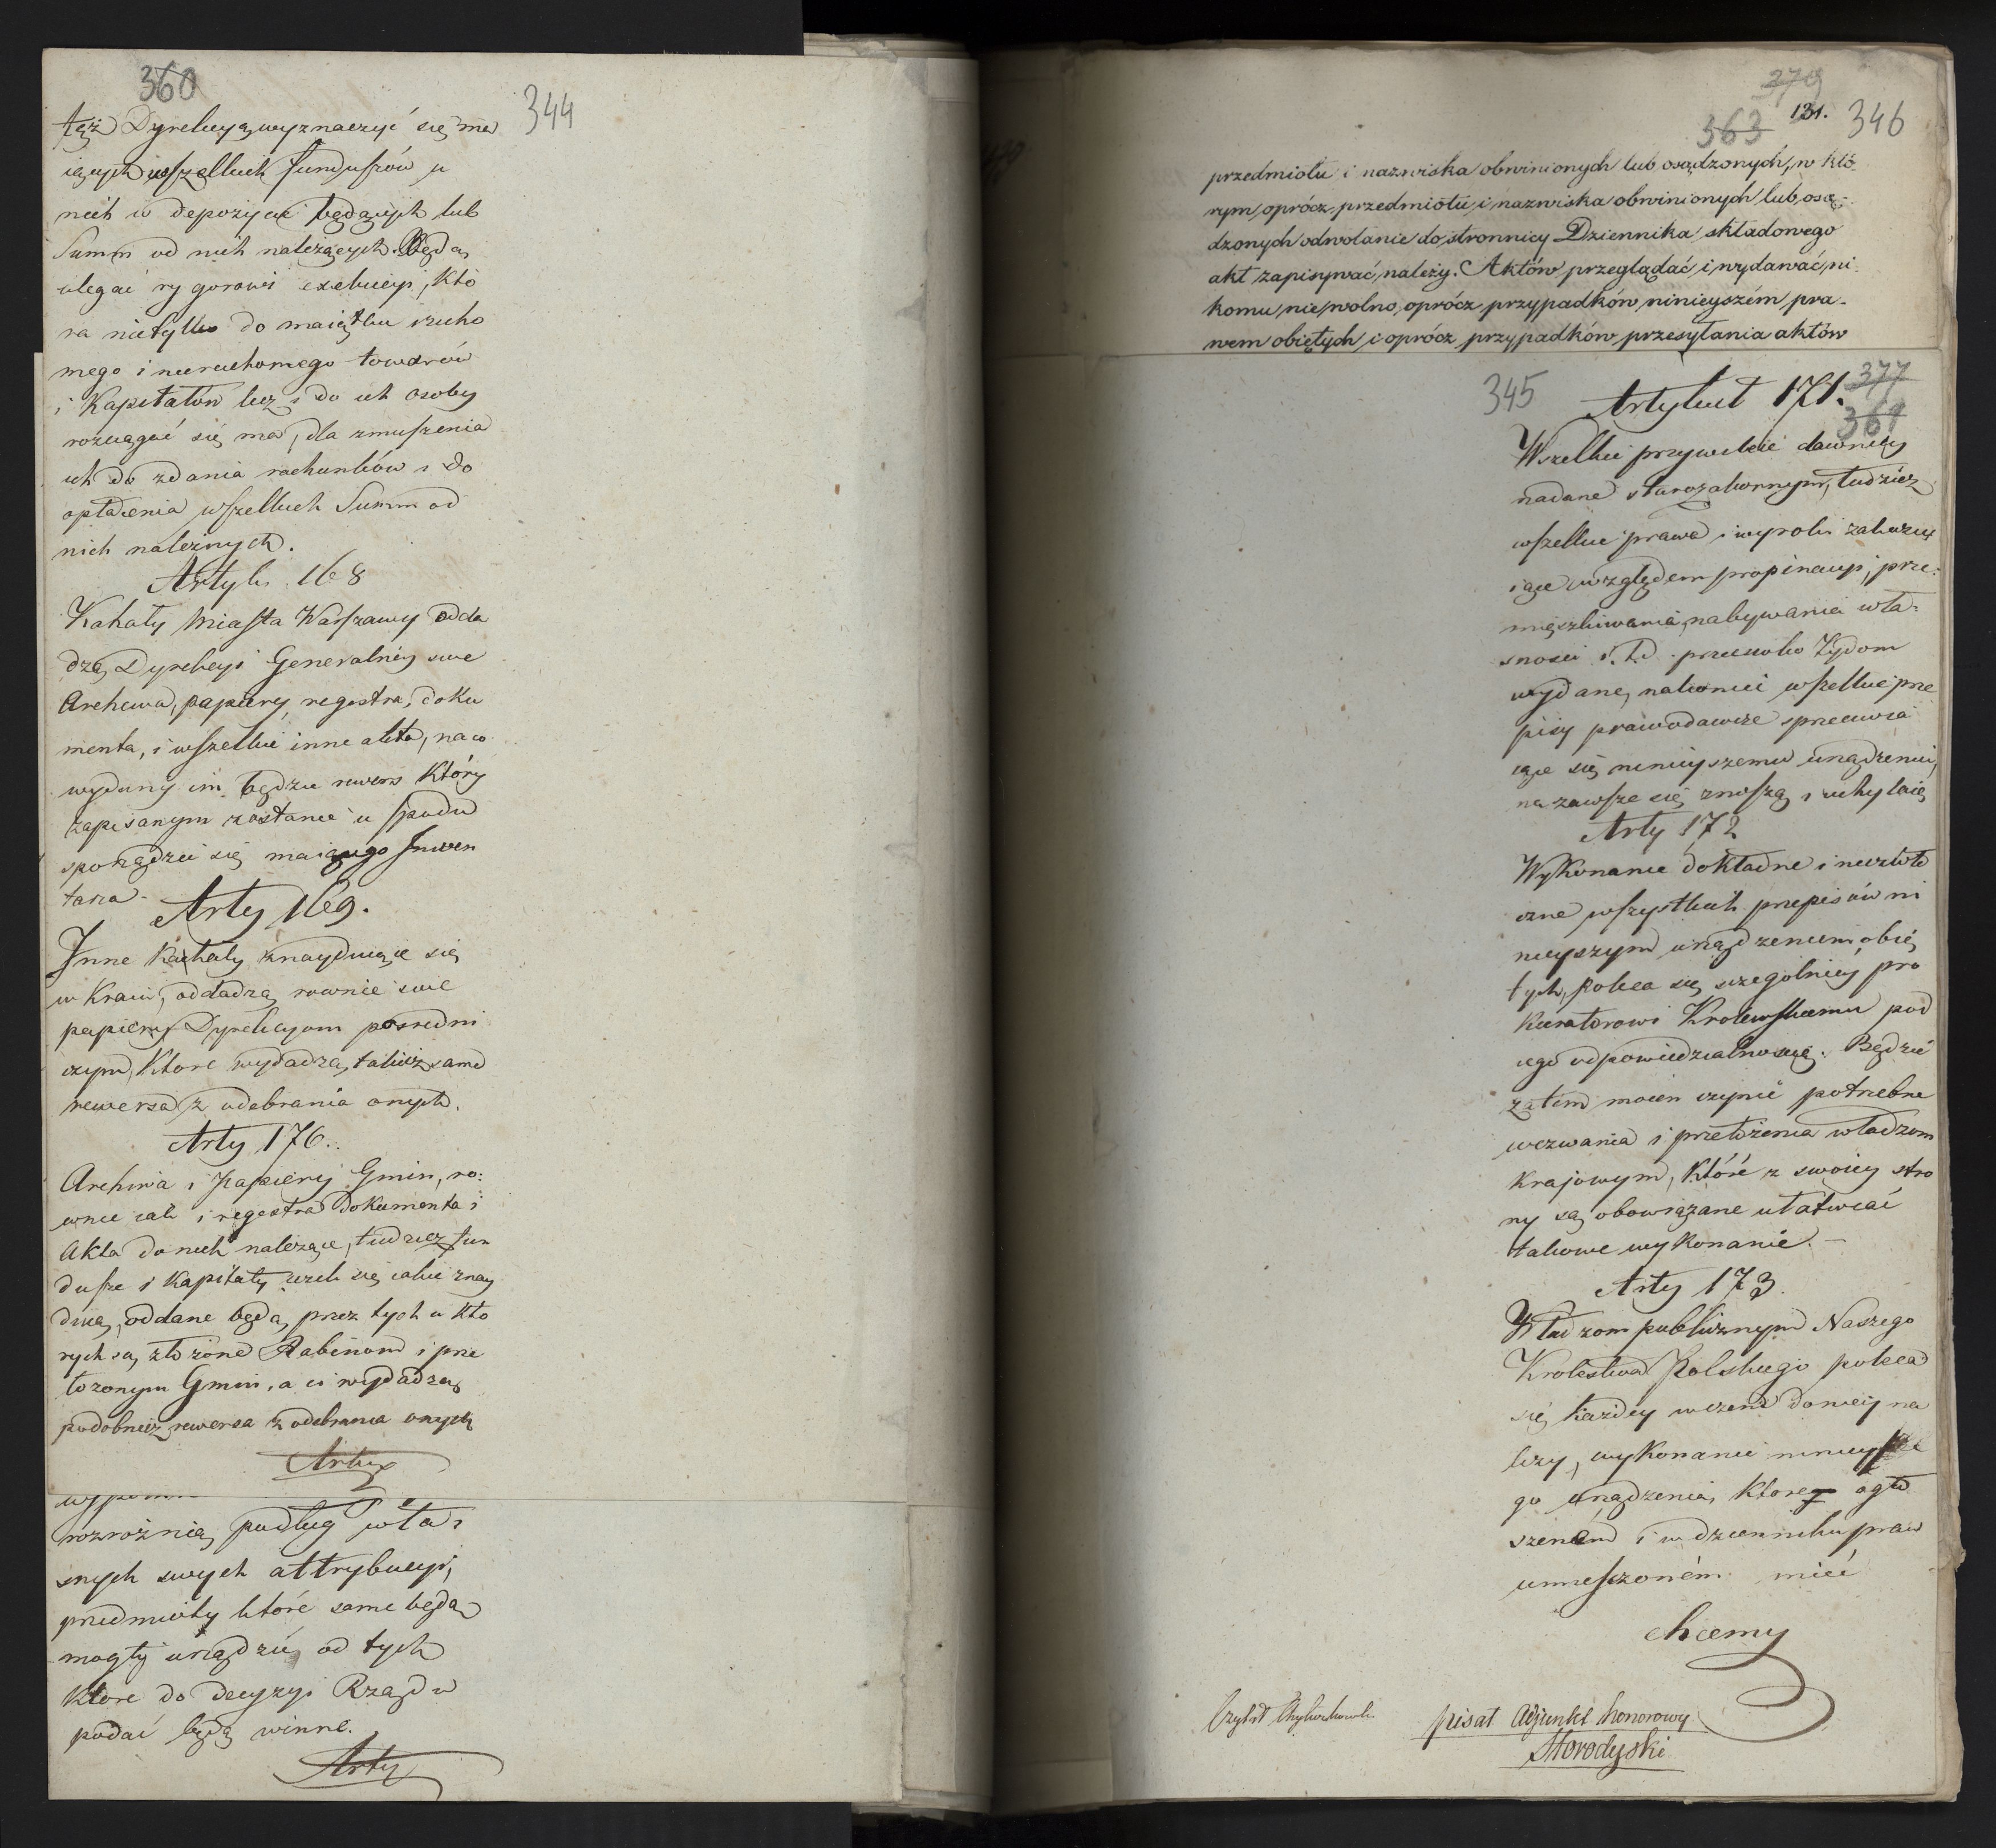 360
344
tęż Dyrekcyą wyznaczyć się ma
iących wszelkich funduszów u
nich w depozycie będących lub
Summ od nich należących. Będą
ulegać rygorowi exekucyi, któ
ra nietylko do maiątku rucho
mego i nieruchomego towarów
i Kapitałów lecz i do ich osoby
rozciągać się ma, dla zmuszenia
ich do zdania rachunków i do
opłacenia wszelkich Summ od
nich należnych.
Artyk. 168
Kahały Miasta Warszawy odda
dzą Dyrekcyi Generalnéy swe
Archiwa, papiery, regestra, doku
menta, i wszelkie inne akta, na co
wydany im będzie rewers który
zapisanym zostanie u spodu
sporządzić się maiącego Inwen
tarza -
Arty 169.
Inne Kahały znayduiące się
w Kraiu, oddadzą rownie swe
papiery Dyrekcyom posredni
czym, Ktore wydadzą takież same
rewersa z odebrania onych.
Arty 170.
Archiwa i Papiery Gmin, ro:
wnie iak i regestra Dokumenta i
Akta do nich należące, tudzież fun
dusze i Kapitały, iezeli się iakie znay
duią, oddane będą przez tych u kto
rych są złożone Rabinom i prze
łożonym Gmin, a ci wydadzą
podobnież rewersa z odebrania onych
Arty
rozrożnią podług wła:
snych swych attrybucyi,
przedmioty które same będą
mogły urządzić, od tych
Ktore do decyzyi Rządu
podać będą winne.
Arty
379
363
131.
346
przedmiotu i nazwiska obwinionych lub osądzonych, w któ-
rym, oprócz przedmiotu, i nazwiska obwinionych lub, osą-
dzonych odwołanie do stronnicy Dziennika składowego
akt zapisywać, należy. Aktów przeglądać i wydawać, ni-
komu, nie, wolno, oprócz przypadków, ninieyszém pra-
wem obiętych, i oprócz przypadków, przesyłania aktów
345
377
361
Artykuł 171.
Wszelkie przywileie dawniey
nadane starozakonnym, tudzież
wszelkie prawa i wyroki zakazu
iące względem propinacyi, prze:
mięszkiwania, nabywania wła:
snosci i T. D. przeciwko Żydom
wydane, nakoniec wszelkie prze
pisy prawodawcze sprzeciwia
iące się ninieyszemu urządzeniu,
na zawsze się znoszą i uchylaią
Arty 172
Wykonanie dokładne i niezwło
czne wszystkich przepisów ni
nieyszym urządzeniem obię
tych, poleca się szczególniey pro
kuratorowi Krolewskiemu pod
iego odpowiedzialnością. Będzie
zatem mocen czynić potrzebne
wezwania i przełożenia władzom
krajowym, które z swoiey stro
ny są obowiązane ułatwiać
takowe wykonanie. -
Arty 173.
Władzom publicznym Naszego
Krolestwa Polskiego poleca
się każdey w czem do niey na
leży, wykonanie ninieysze
go urządzenia, ktore ogło
szeném i w dzienniku praw
umieszczoném mieć
chcemy
Czytał
pisał Adjunkt honorowy
Horodyski